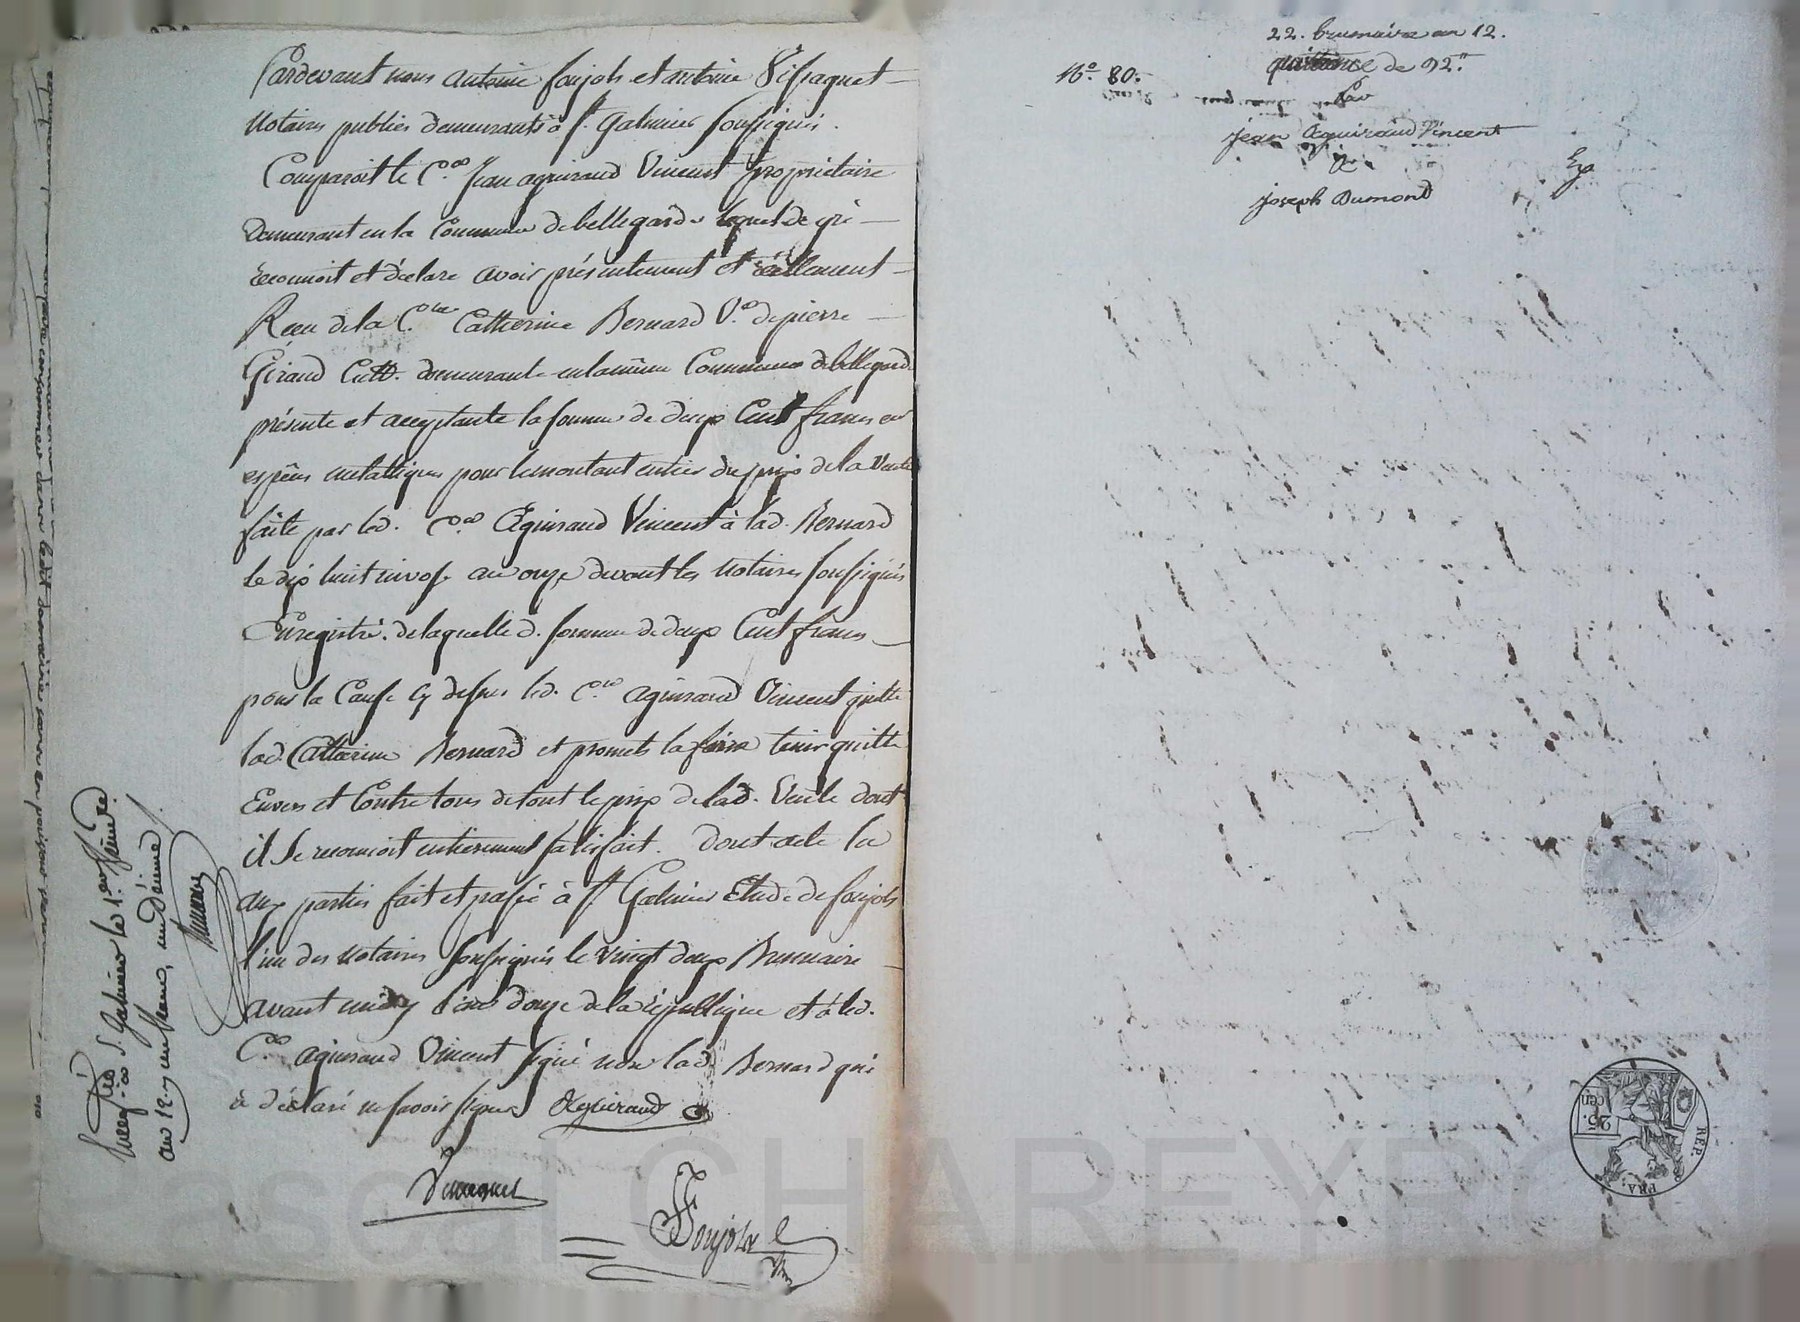 Pardevant nous antoine foujols et antoine
Notaires publics demeurants à St. Galmier soussignés.
Comparoit le C.en Jean aguiraud Vincent propriétaire
demeurant en la Commune de bellegarde lequel de gré
reconnoit et déclare avoir présentement et réellement
Recu de la C.enne Catherine Bernard V.e de pierre
Giraud Cult. demeurante en la même Commune de bellegarde
présente et acceptante la somme de deux Cent francs en
espèces métalliques pour le montant entier du prix de la Vente
faite par led. C.en Aguiraud Vincent à lad. Bernard
le dix huit nivose an onze devant les Notaires soussignés
Enregistré. de laquelle d. somme de deux Cent francs
pour la Cause cy dessus led. C.en aguiraud Vincent quitte
lad. Catterine Bernard et promets la faire tenir quitte
Envers et Contre tous de tout le prix de lad. Vente dont
il se reconnoit entierement satisfait. dont acte lu
aux parties fait et passé à St. Galmier Etude de foujols
l'un des Notaires soussignés le vingt deux Brumaire
avant midy l'an douze de la république et à led.
C.en aguiraud Vincent signé non lad. Bernard qui
à déclaré ne savoir signer Aguiraud
foujols
Enreg. à S. Galmier le 1.er frimaire
an 12, un franc, un décime
22. brumaire an 12.
N.o 80.
quittance de 92.
Par
Jean Aguiraud Vincent
à
Joseph Dumond
Exp
25. cen
REP. FRA.
Pascal CHAREYRON